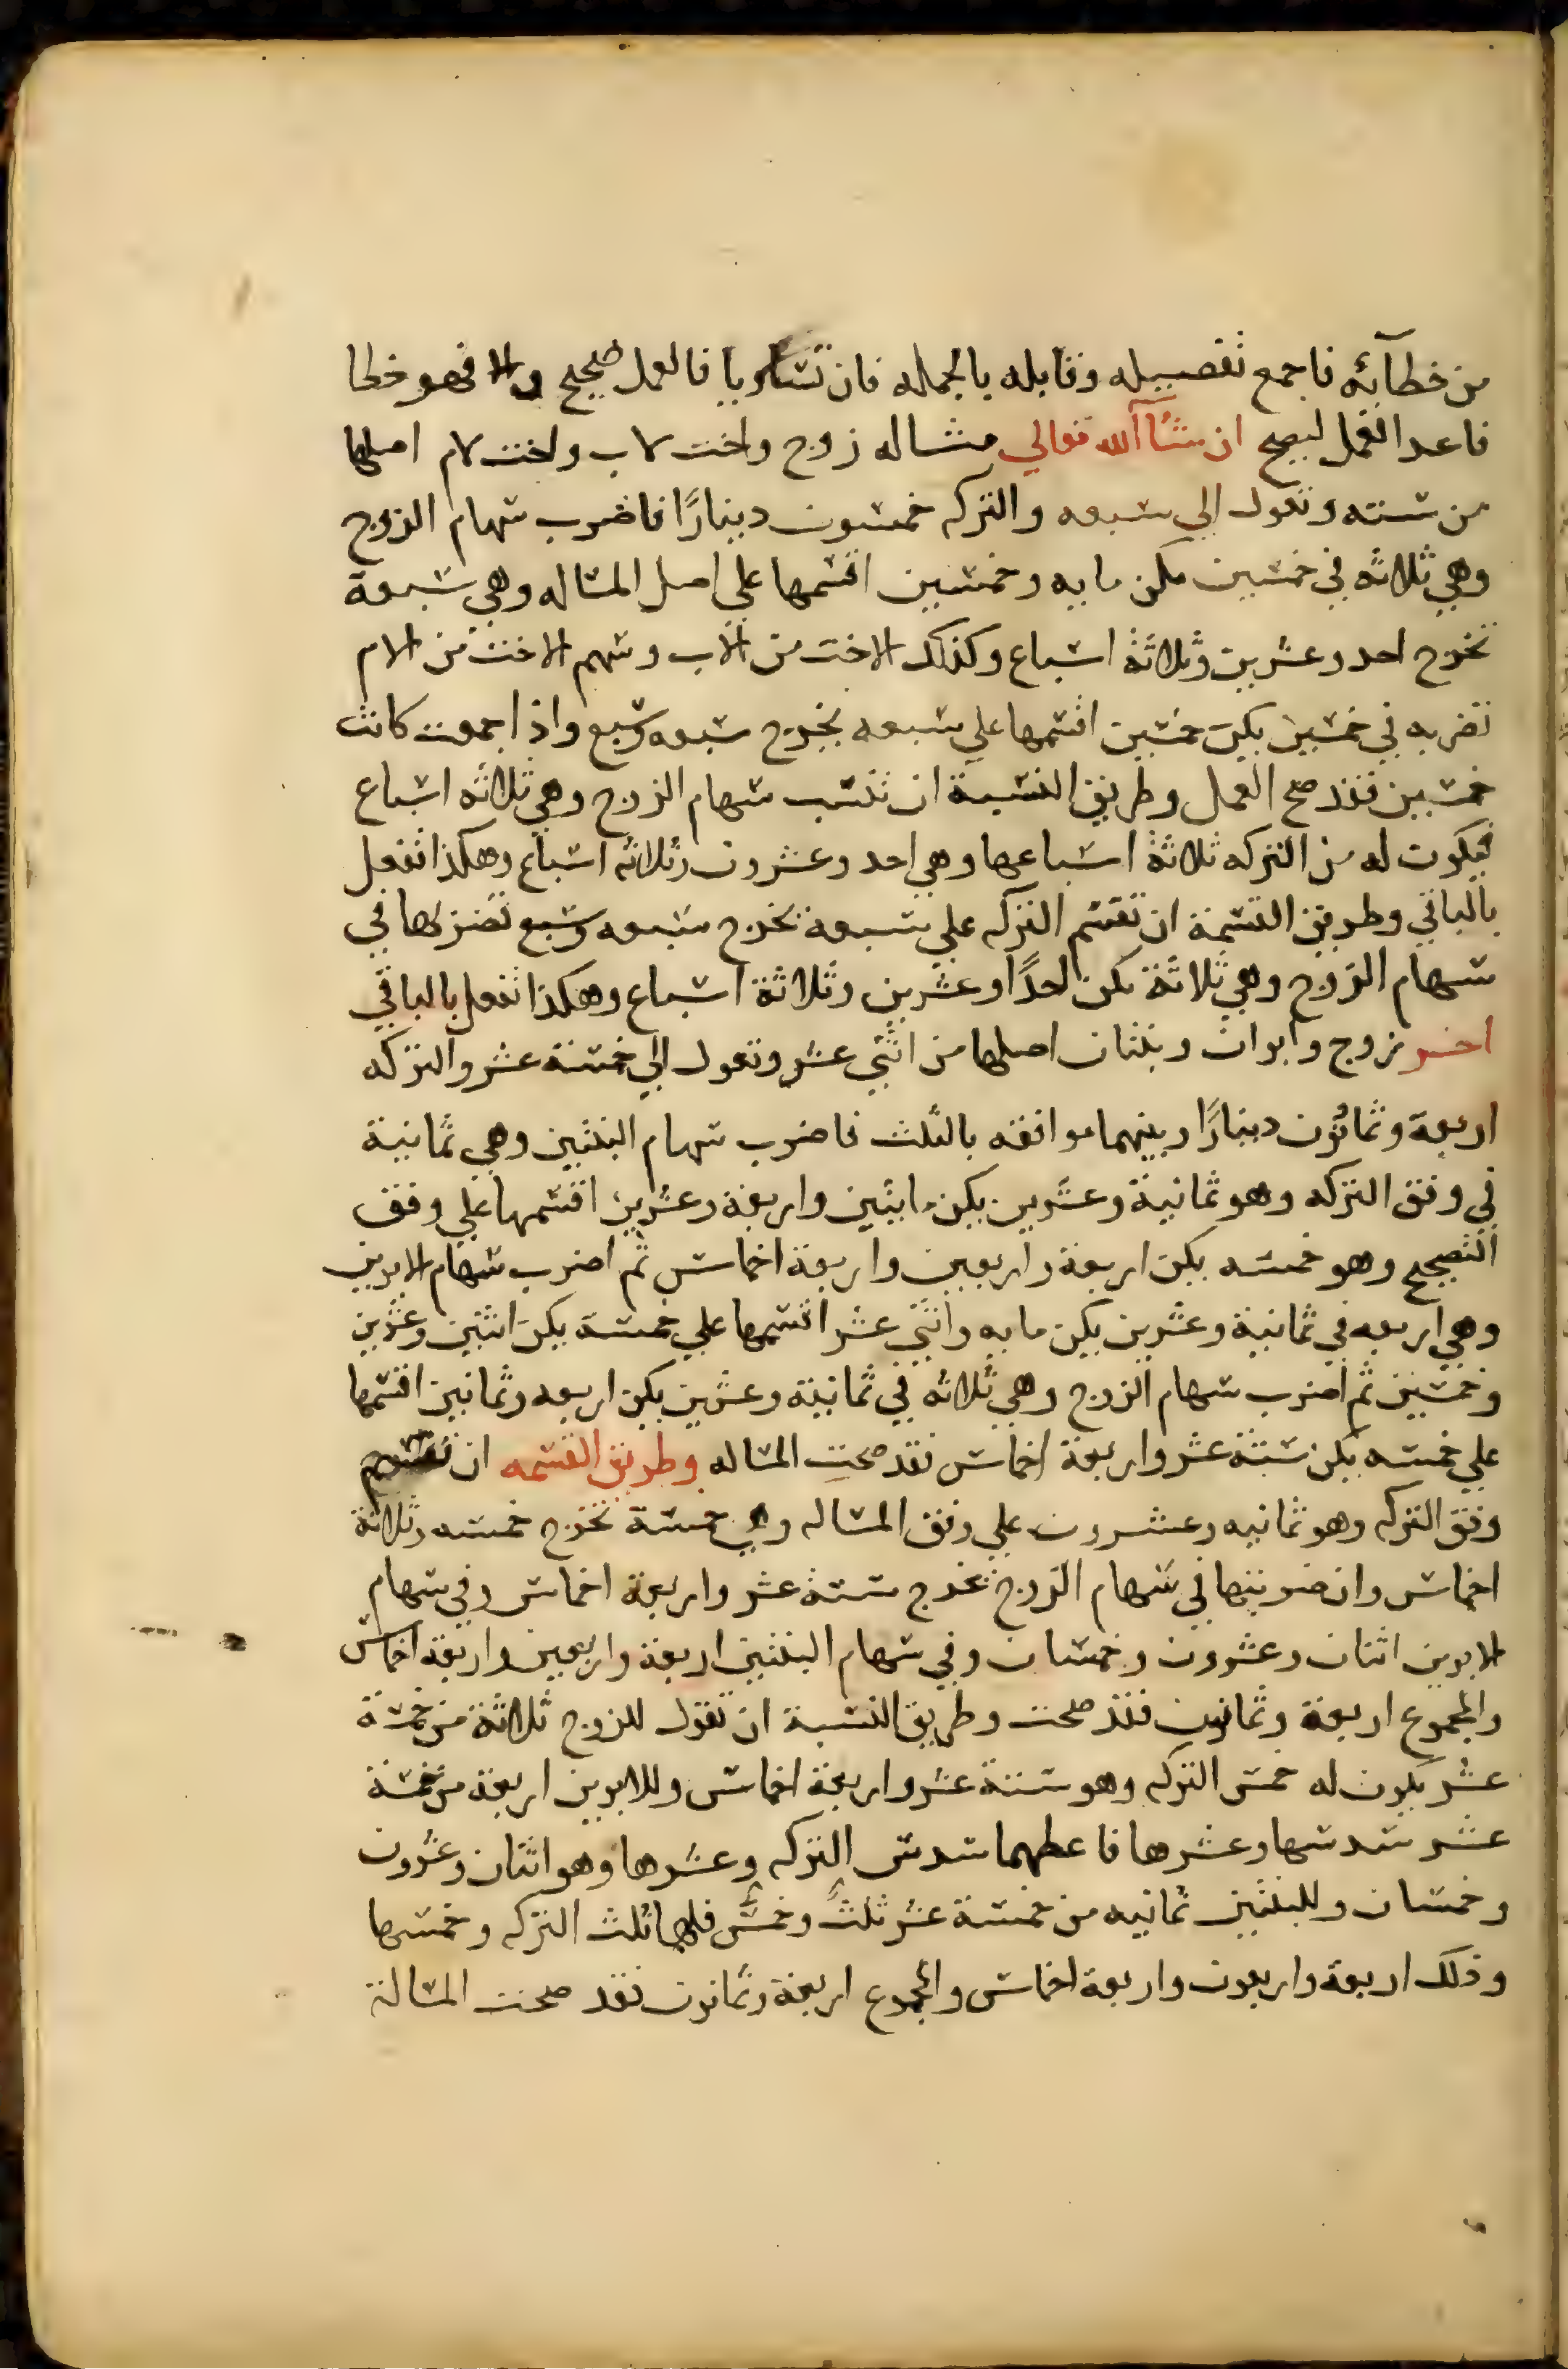 من خطآئه فاجمع تفصيله وقابله بالجمله فان تساويا فالعمل صحيح والا فهو خطا
فاعد العمل ليصح ان شآ الله تعالي مثاله زوج واخت لاب واخت لام اصلها
من سته وتعول الي سبعه والتركه خمسون دينارًا فاضرب سهام الزوج
وهي ثلاثه في خمسين يكن مايه وخمسين اقسمها علي اصل المساله وهي سبعة
تخرج احد وعشرين وثلاثة اسباع وكذلك الاخت من الاب وسهم الاخت من الام
تضربه في خمسين يكن خمسين اقسمها علي سبعه يخرج سبعه وسبع واذا جمعت كانت
خمسين فقد صح العمل وطريق النسبة ان تنسب سهام الزوج وهي ثلاثه اسباع
فيكون له من التركه ثلاثة اسباعها وهي احد وعشرون وثلاثه اسباع وهكذا تفعل
بالباقي وطريق القسمة ان تقسم التركه علي سبعة تخرج سبعه وسبع تضربها في
سهام الزوج وهي ثلاثة يكن احدًا وعشرين وثلاثة اسباع وهكذا تفعل بالباقي
اخر زوج وابوان وبنتان اصلها من اثني عشر وتعول الي خمسة عشر والتركه
اربعة وثمانون دينارًا وبينهما موافقه بالثلث فاضرب سهام البنتين وهي ثمانية
في وفق التركه وهو ثمانية وعشرين يكن مايتين واربعة وعشرين اقسمها علي وفق
التصحيح وهو خمسه يكن اربعة واربعين واربعة اخماس ثم اضرب سهام الابوين
وهي اربعه في ثمانية وعشرين يكن مايه واثني عشر اقسمها علي خمسة يكن اثنين وعشرين
وخمسين ثم اضرب سهام الزوج وهي ثلاثه في ثمانية وعشرين يكن اربعه وثمانين اقسمها
علي خمسه يكن ستة عشر واربعة اخماس فقد صحت المساله وطريق القسمه ان تقسم
وفق التركه وهو ثمانيه وعشرون علي وفق المساله وهي خمسة تخرج خمسه وثلاثة
اخماس وان ضربتها في سهام الزوج تخرج ستة عشر واربعة اخماس وفي سهام
الابوين اثنان وعشرون وخمسان وفي سهام البنتين اربعة واربعين واربعة اخماس
والمجموع اربعة وثمانون فقد صحت وطريق النسبة ان تقول للزوج ثلاثة من خمسة
عشر يكون له خمس التركه وهو ستة عشر واربعة اخماس وللابوين اربعة من خمسة
عشر سدسها وعشرها فاعطهما سدس التركه وعشرها وهو اثنان وعشرون
وخمسان وللبنتين ثمانيه من خمسة عشر ثلث وخمس فلهما ثلث التركه وخمسها
وذلك اربعة واربعون واربعة اخماس والمجموع اربعة وثمانون فقد صحت المسالة